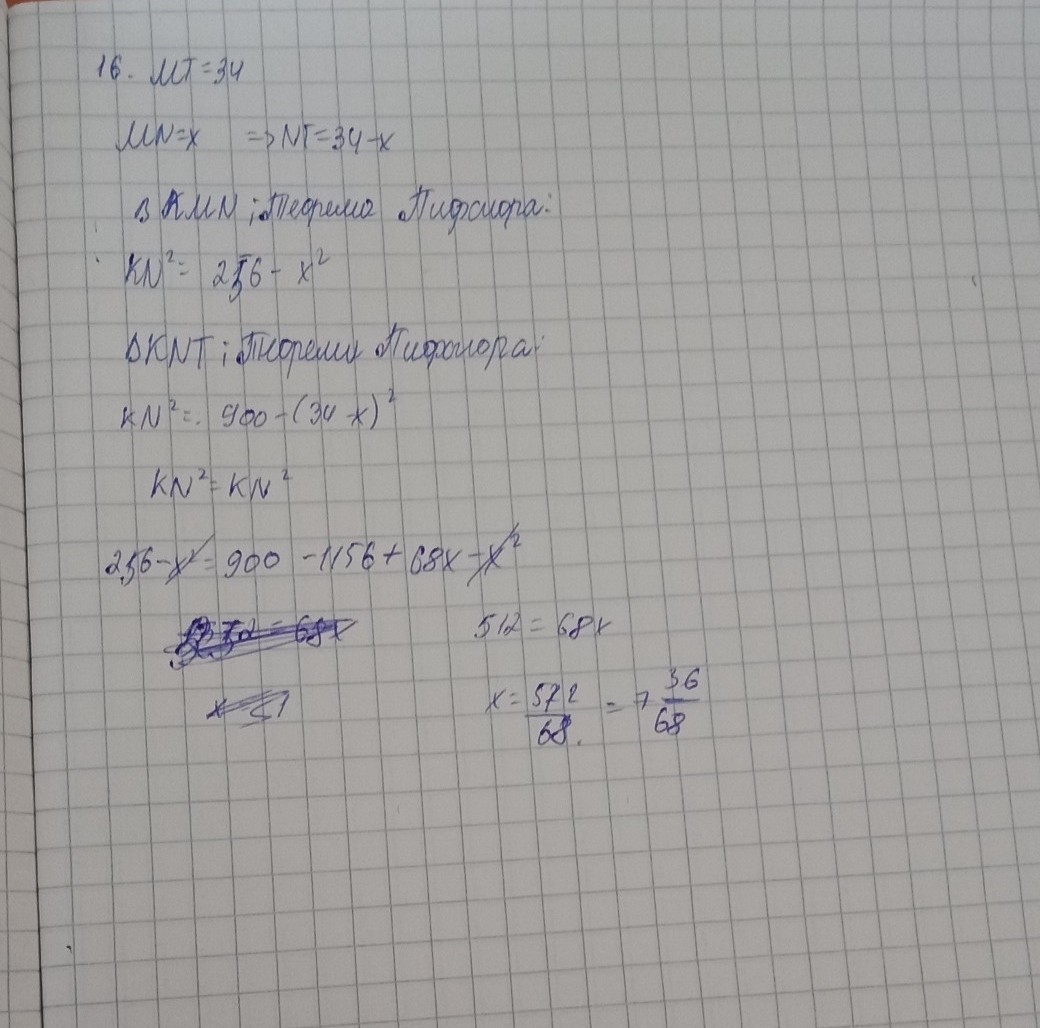 16. MT=34
MN=x => NT=34-x
В KMN; Теорема Пифагора:
KN²= 256 - x²
ΔKNT; Теорема Пифагора:
KN²=. 900-(34-x)²
KN²=KN²
256-x²=900 -1156+68x-x²
512=68x
x=512/68.=7 36/68